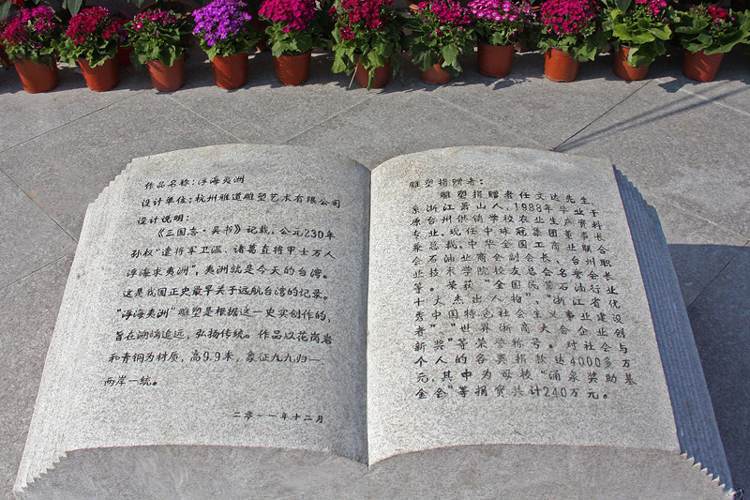 作品名称：浮海夷洲
设计单位：杭州雅道雕塑艺术有限公司
设计说明：
《三国志·吴书》记载，公元230年
孙权“遣将军卫温、诸葛直将甲士万人
浮海求夷洲”，夷洲就是今天的台湾。
这是我国正史最早关于远航台湾的记录。
“浮海夷洲”雕塑是根据这一史实创作的，
旨在溯端追远，弘扬传统。作品以花岗岩
和青铜为材质，高9.9米，象征九九归一
两岸一统。
二零一一年十二月
雕塑捐赠者：
雕塑捐赠者任文达先生，
系浙江萧山人，1988年毕业于
原台州供销学校农业生产资料
专业，现任中球冠集团董事长
兼总裁，中华全国工商业联合
会石油业商会副会长、台州职
业技术学院校友总会名誉会长
等。荣获“全国民营石油行业
十大杰出人物”、“浙江省优
秀中国特色社会主义事业建设
者”、“世界浙商大会企业创
新奖”等荣誉称号。对社会与
个人的各类捐款达4000多万
元，其中为母校“涌泉奖助基
金会”等捐资共计240万元。